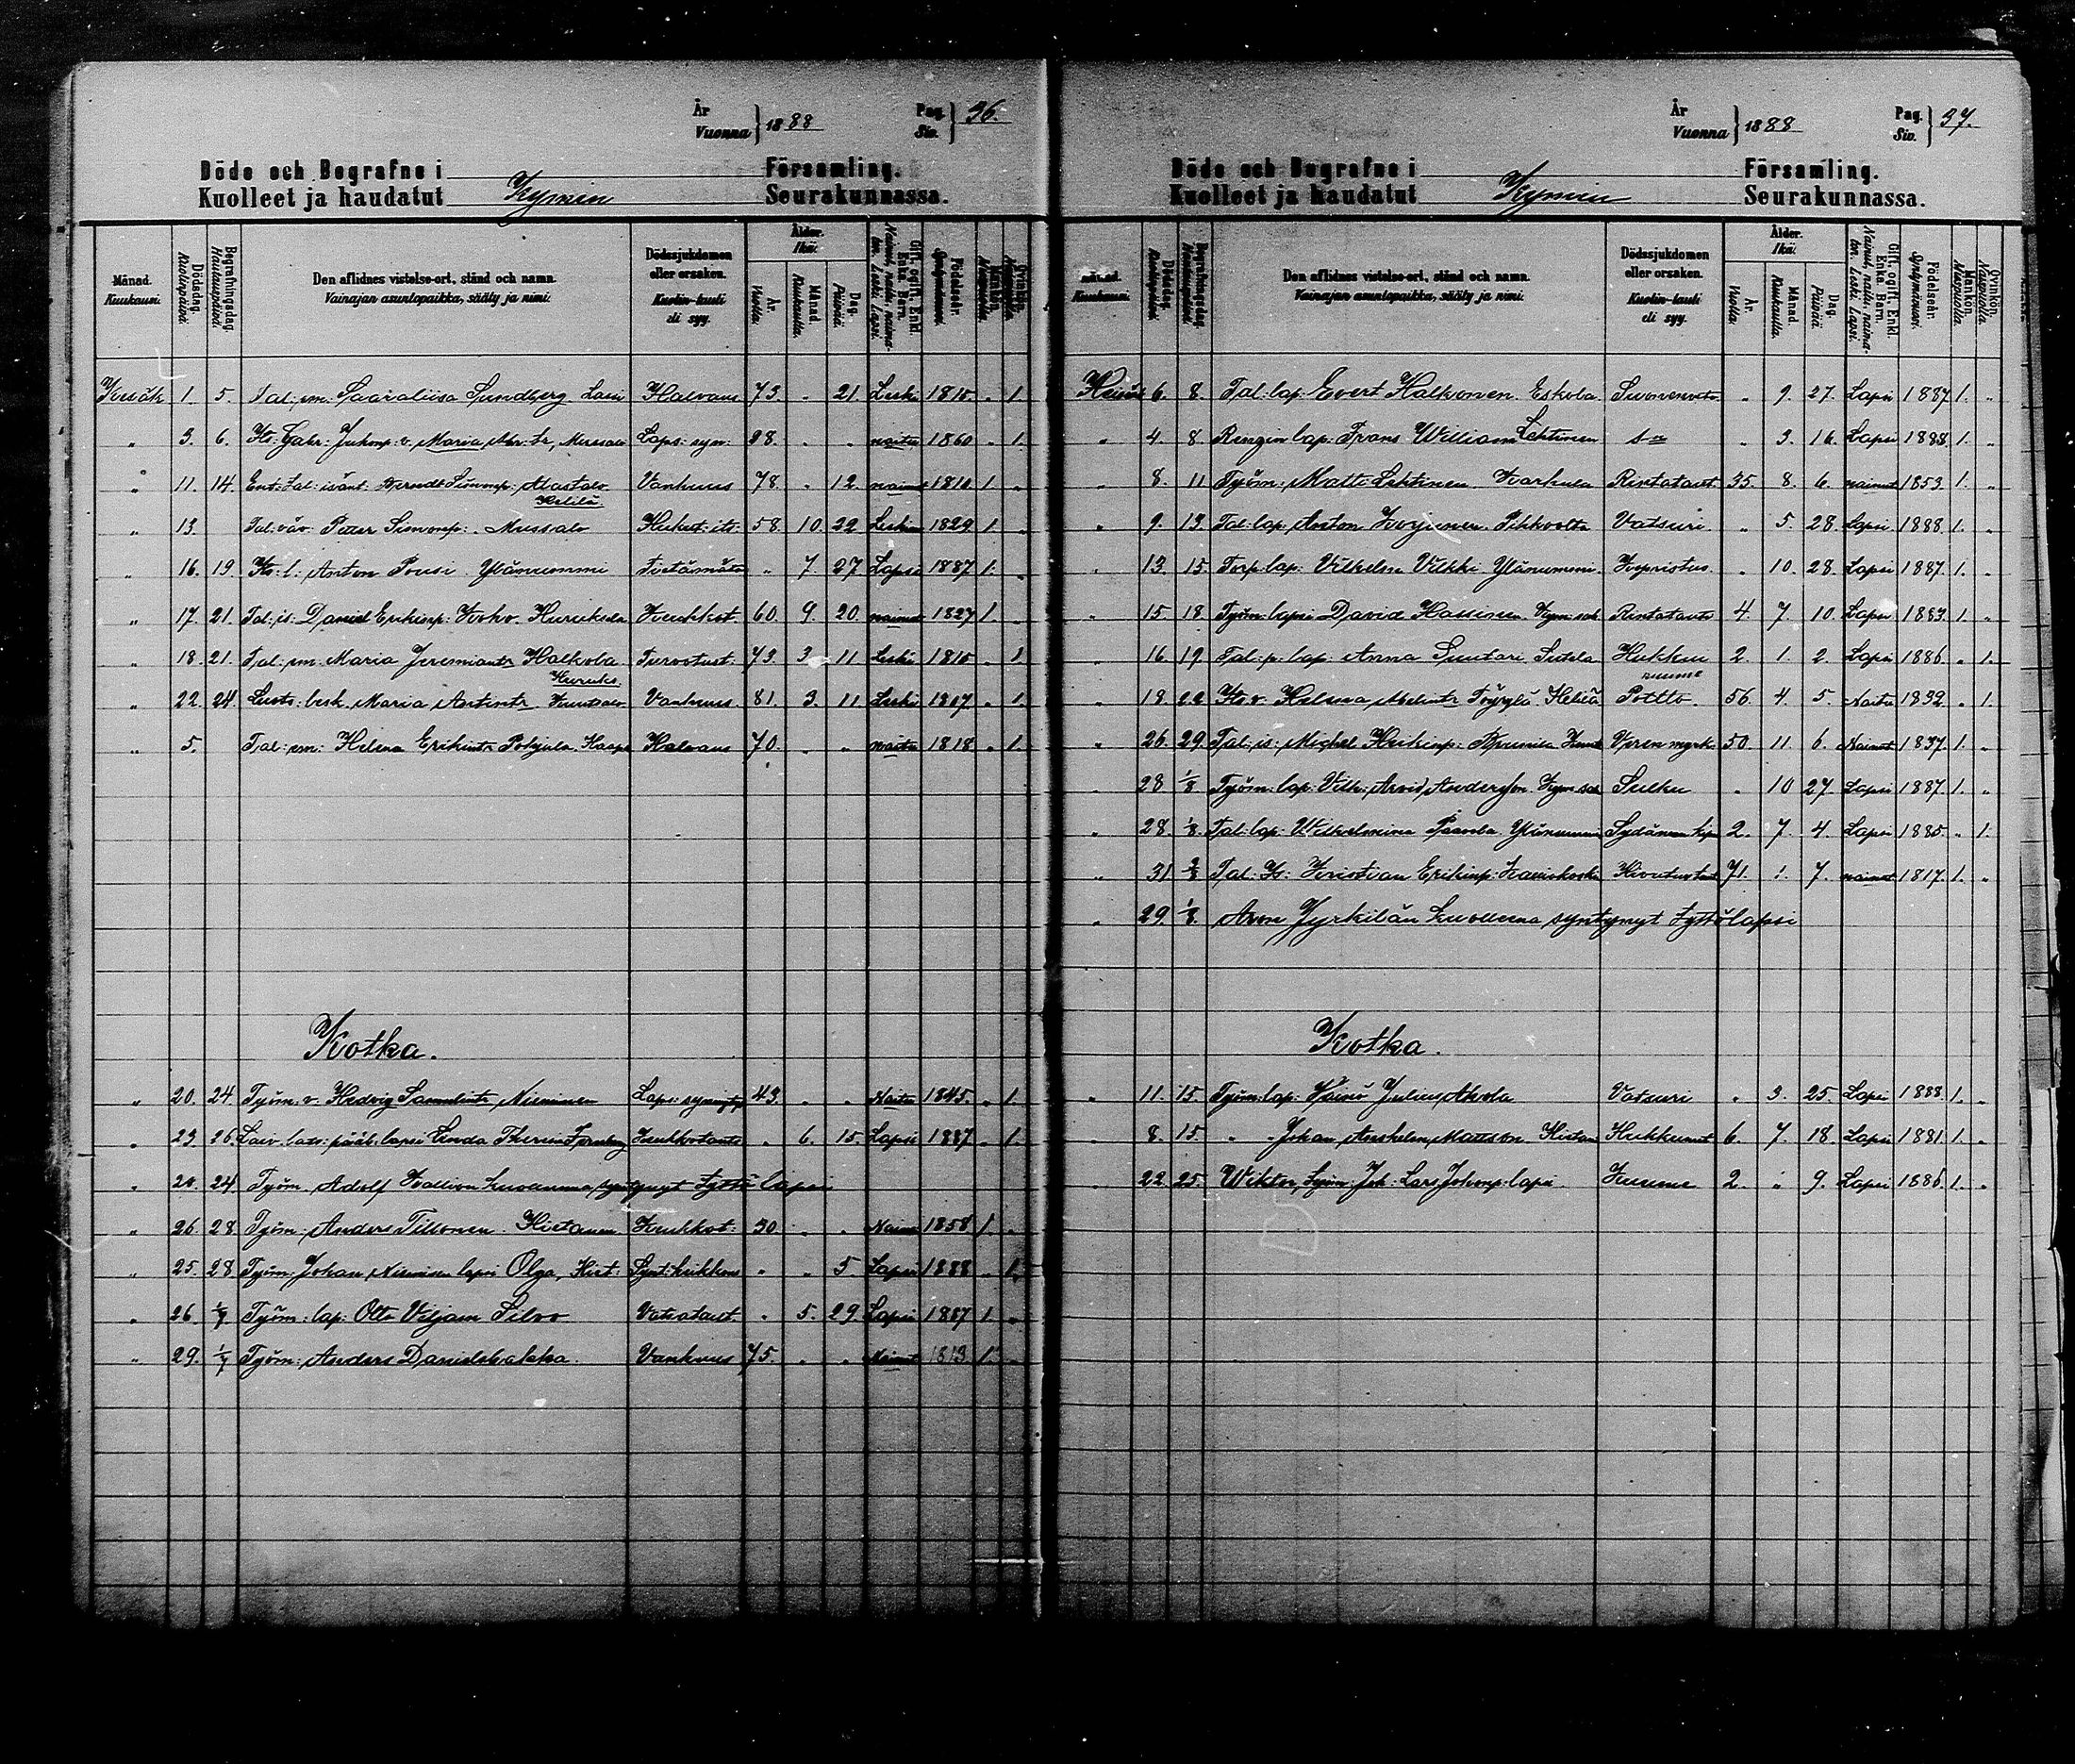 År Vuonna } 1888 Pag. Siv. } 36.
Döde och Begrafne i Församling.
Kuolleet ja haudatut Kymin Seurakunnassa.
Månad. Kuukausi. Dödsdag. Kuolinpäivä. Begrafningsdag. Hautauspäivä. Den aflidnes vistelse-ort, stånd och namn. Vainajan asuntopaikka, sääty ja nimi. Dödssjukdomen eller orsaken. Kuolin-tauti eli syy. Ålder. Ikä. År. Vuotta. Månad. Kuukautta. Dag. Päivää. Gift, ogift, Enkl. Enka. Barn. Nainut, naitu, naimaton. Leski. Lapsi. Födelseår. Syntymävuosi. Mankön. Miespuolia. Qvinkön. Naispuolia.
Kesäk. 1. 5. Tal: em: Saaraliisa Sundberg Halvaus 73. „ 21. Leski 1815 „ 1.
„ 3. 6. Ks: Gabr: Juhonp: v. Maria Laps: syn: 28. „ „ naitu 1860 „ 1.
„ 11. 14. Ent: tal: isänt. Berndt Simonp: Alastalo Vanhuus 78. „ 12. nainut 1810 1. „
Helilä
„ 13. Tal: väv. Petter Simonp: Mussalo Hukut: its: 58. 10. 22. Leskim 1829 1. „
„ 16. 19. Ks: l. Anton Pousi Ylänummi „ 7. 27 Lapsi 1887 1. „
„ 17. 21. Tal: is: Daniel Erikinp: Kokko Huruksela Keuhkot. 60. 9. 20. nainut 1827 1. „
„ 18. 21. Tal: em: Maria Jeremiantr Halkola Turvotust. 73. 3. 11 Leski 1815 „ 1
Huruks.
„ 22. 24. Maria Antintr Vanhuus. 81. 3. 11 Leski 1807 „ 1.
„ 5. Tal: em: Helena Erikintr Pohjala Haapa Halvaus 70. „ „ naitu 1818 „ 1.
Kotka.
„ 20. 24. Työm. v. Hedvig Samulintr Nieminen 43. „ „ Naitu 1845. „ 1.
„ 23. 26. lapsi Linda Keuhkotauti „ 6. 15. Lapsi 1887 „ 1.
„ 20. 24. Työm. Adolf Kallion kuolleena syntynyt tyttö lapsi
„ 26. 28. Työm. Anders Tillonen Hietanen Keuhkot: 30. „ „ Nainut 1858 1. „
„ 25. 28 Työm. Johan Niemisen lapsi Olga, Hiet: „ „ 5. Lapsi 1888 „ 1.
„ 26. 1/7 Työm: lap: Otto Viljam Silvo Vatsataut. „ 5. 29. Lapsi 1887 1. „
„ 29. 1/7 Työm: Anders Danielskakka. Vanhuus 75. „ „ Nainut 1813 1. „
År Vuonna } 1888 Pag. Siv. } 37.
Döde och Begrafne i Församling.
Kuolleet ja haudatut Kymin Seurakunnassa.
Månad. Kuukausi. Dödsdag. Kuolinpäivä. Begrafningsdag. Hautauspäivä. Den aflidnes vistelse-ort, stånd och namn. Vainajan asuntopaikka, sääty ja nimi. Dödssjukdomen eller orsaken. Kuolin-tauti eli syy. Ålder. Ikä. År. Vuotta. Månad. Kuukautta. Dag. Päivää. Gift, ogift, Enkl. Enka. Barn. Nainut, naitu, naimaton. Leski. Lapsi. Födelseår. Syntymävuosi. Mankön. Miespuolia. Qvinkön. Naispuolia.
Heinäk 6. 8. Tal: lap: Evert Halkonen. Eskola Suonenveto „ 9. 27. Lapsi 1887 1. „
„ 4. 8 Rengin lap: Frans William Lehtinen „ 3. 16. Lapsi 1888. 1. „
„ 8. 11 Työm: Matti Lehtinen Karhula Rintataut. 35. 8. 6. nainut 1853. 1. „
„ 9. 13. Tal: lap. Anton Korjunen Pihkoolta Vatsuri „ 5. 28. Lapsi 1888. 1. „
„ 13. 15. Torp. lap: Vilhelm Vilkki Ylänummi. Kuristus. „ 10. 28. Lapsi 1887. 1. „
„ 15. 18 Työm: lapsi David Hassinen Kym: sah Rintatauti 4. 7. 10. Lapsi 1883. 1. „
„ 16. 19. Tal: p: lap: Anna Suutari Sutela Hukkui 2. 1. 2. Lapsi 1886. „ 1.
„ 18. Ks: v. Helena Töyrylä Helilä Poltto. 56. 4. 5. Naitu 1832. „ 1.
„ 26. 29. Tal: is: Michel Heikinp: Veren myrk. 50. 11 6. Nainut 1837. 1. „
„ 28 1/8 Työm: lap: Vilh: Arvid Andersson Kym: sah Sulku „ 10 27. Lapsi 1887. 1. „
„ 28. 1/8. Tal: lap: Wilhelmina Paavola Ylänummi 2. 7. 4. Lapsi 1885. „ 1.
„ 31 2/8 Tal: Ks: Kristian Erikinp: 71. 1. 7. nainut 1817. 1. „
„ 29. 1/8. Aron Jyrkilän kuolleena syntynyt tyttölapsi
Kotka.
„ 11. 15. Työm: lap: Väinö Julius Ahola Vatsuri „ 3. 25. Lapsi 1888. 1. „
„ 8. 15. „ „ Johan Anshelm Mattson Hietan Hukkunut 6. 7. 18. Lapsi 1881. 1. „
„ 22. 25. Wiktor, työm: Joh: Lars Johanp: lapsi Kuume 2. „ 9. Lapsi 1886. 1. „